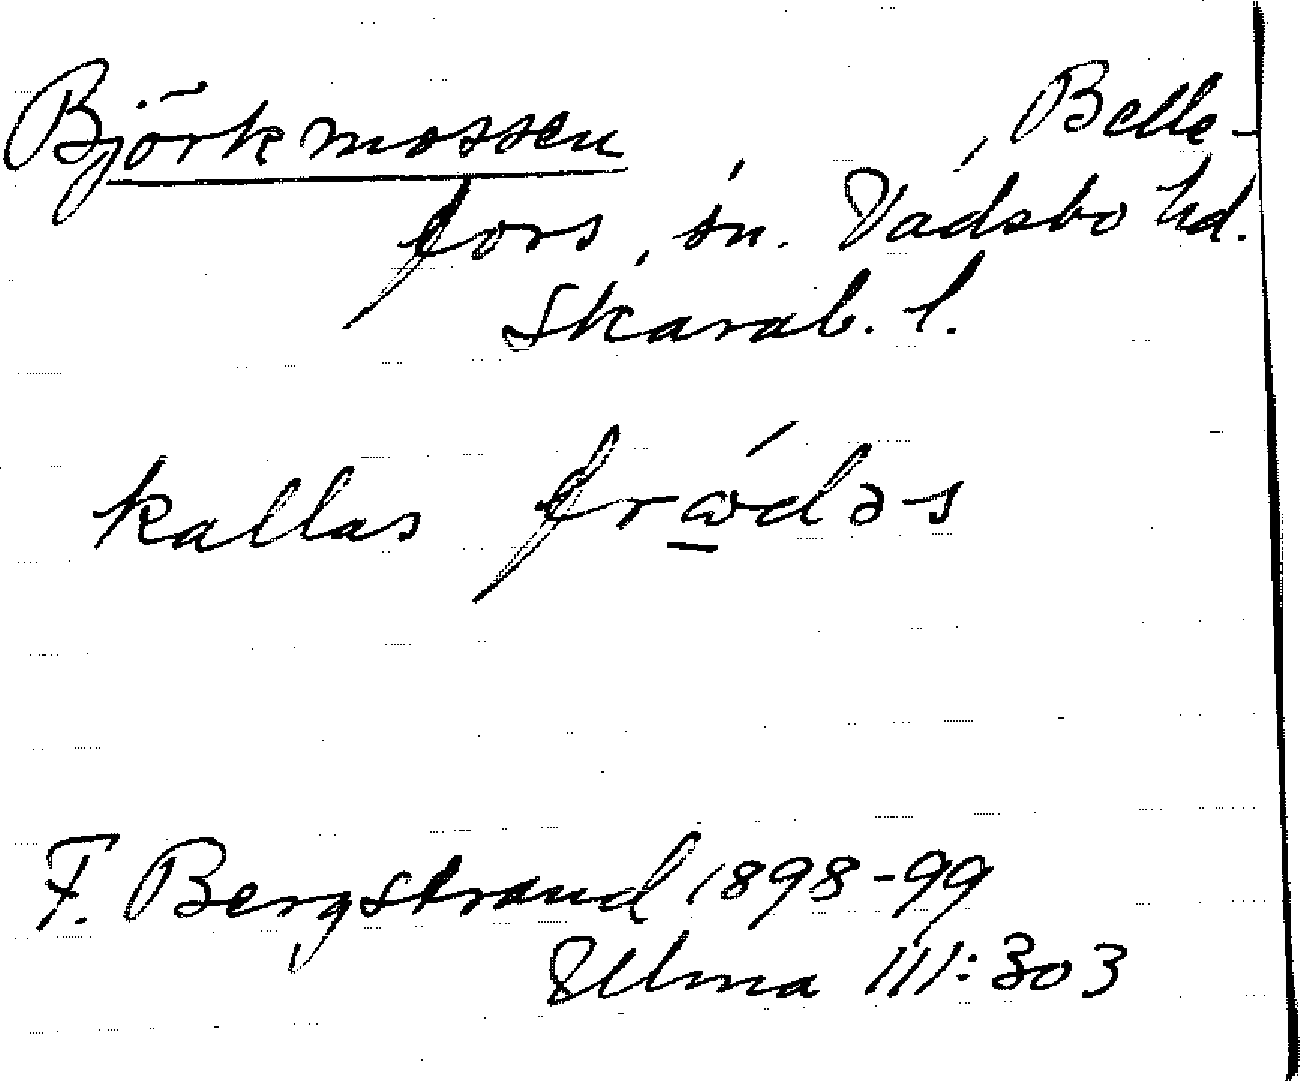 Björkmossen, Belle-
fors, sn. Vadsbo hd.
Skarab. l.
kallas
F. Bergstrand 1898-99
Ulma III:303